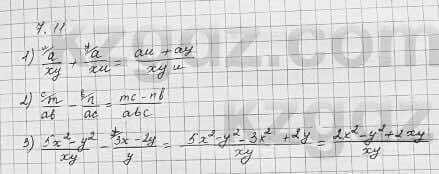 7.11
1) ᵘa/xy + ʸa/xu = (au + ay)/xyu
2) ᶜm/ab − ᵇn/ac = (mc − nb)/abc
3) (5x² − y²)/xy − ˣ(3x − 2y)/y = (5x² − y² − 3x² + 2y)/xy = (2x² − y² + 2xy)/xy
kzgaz.com